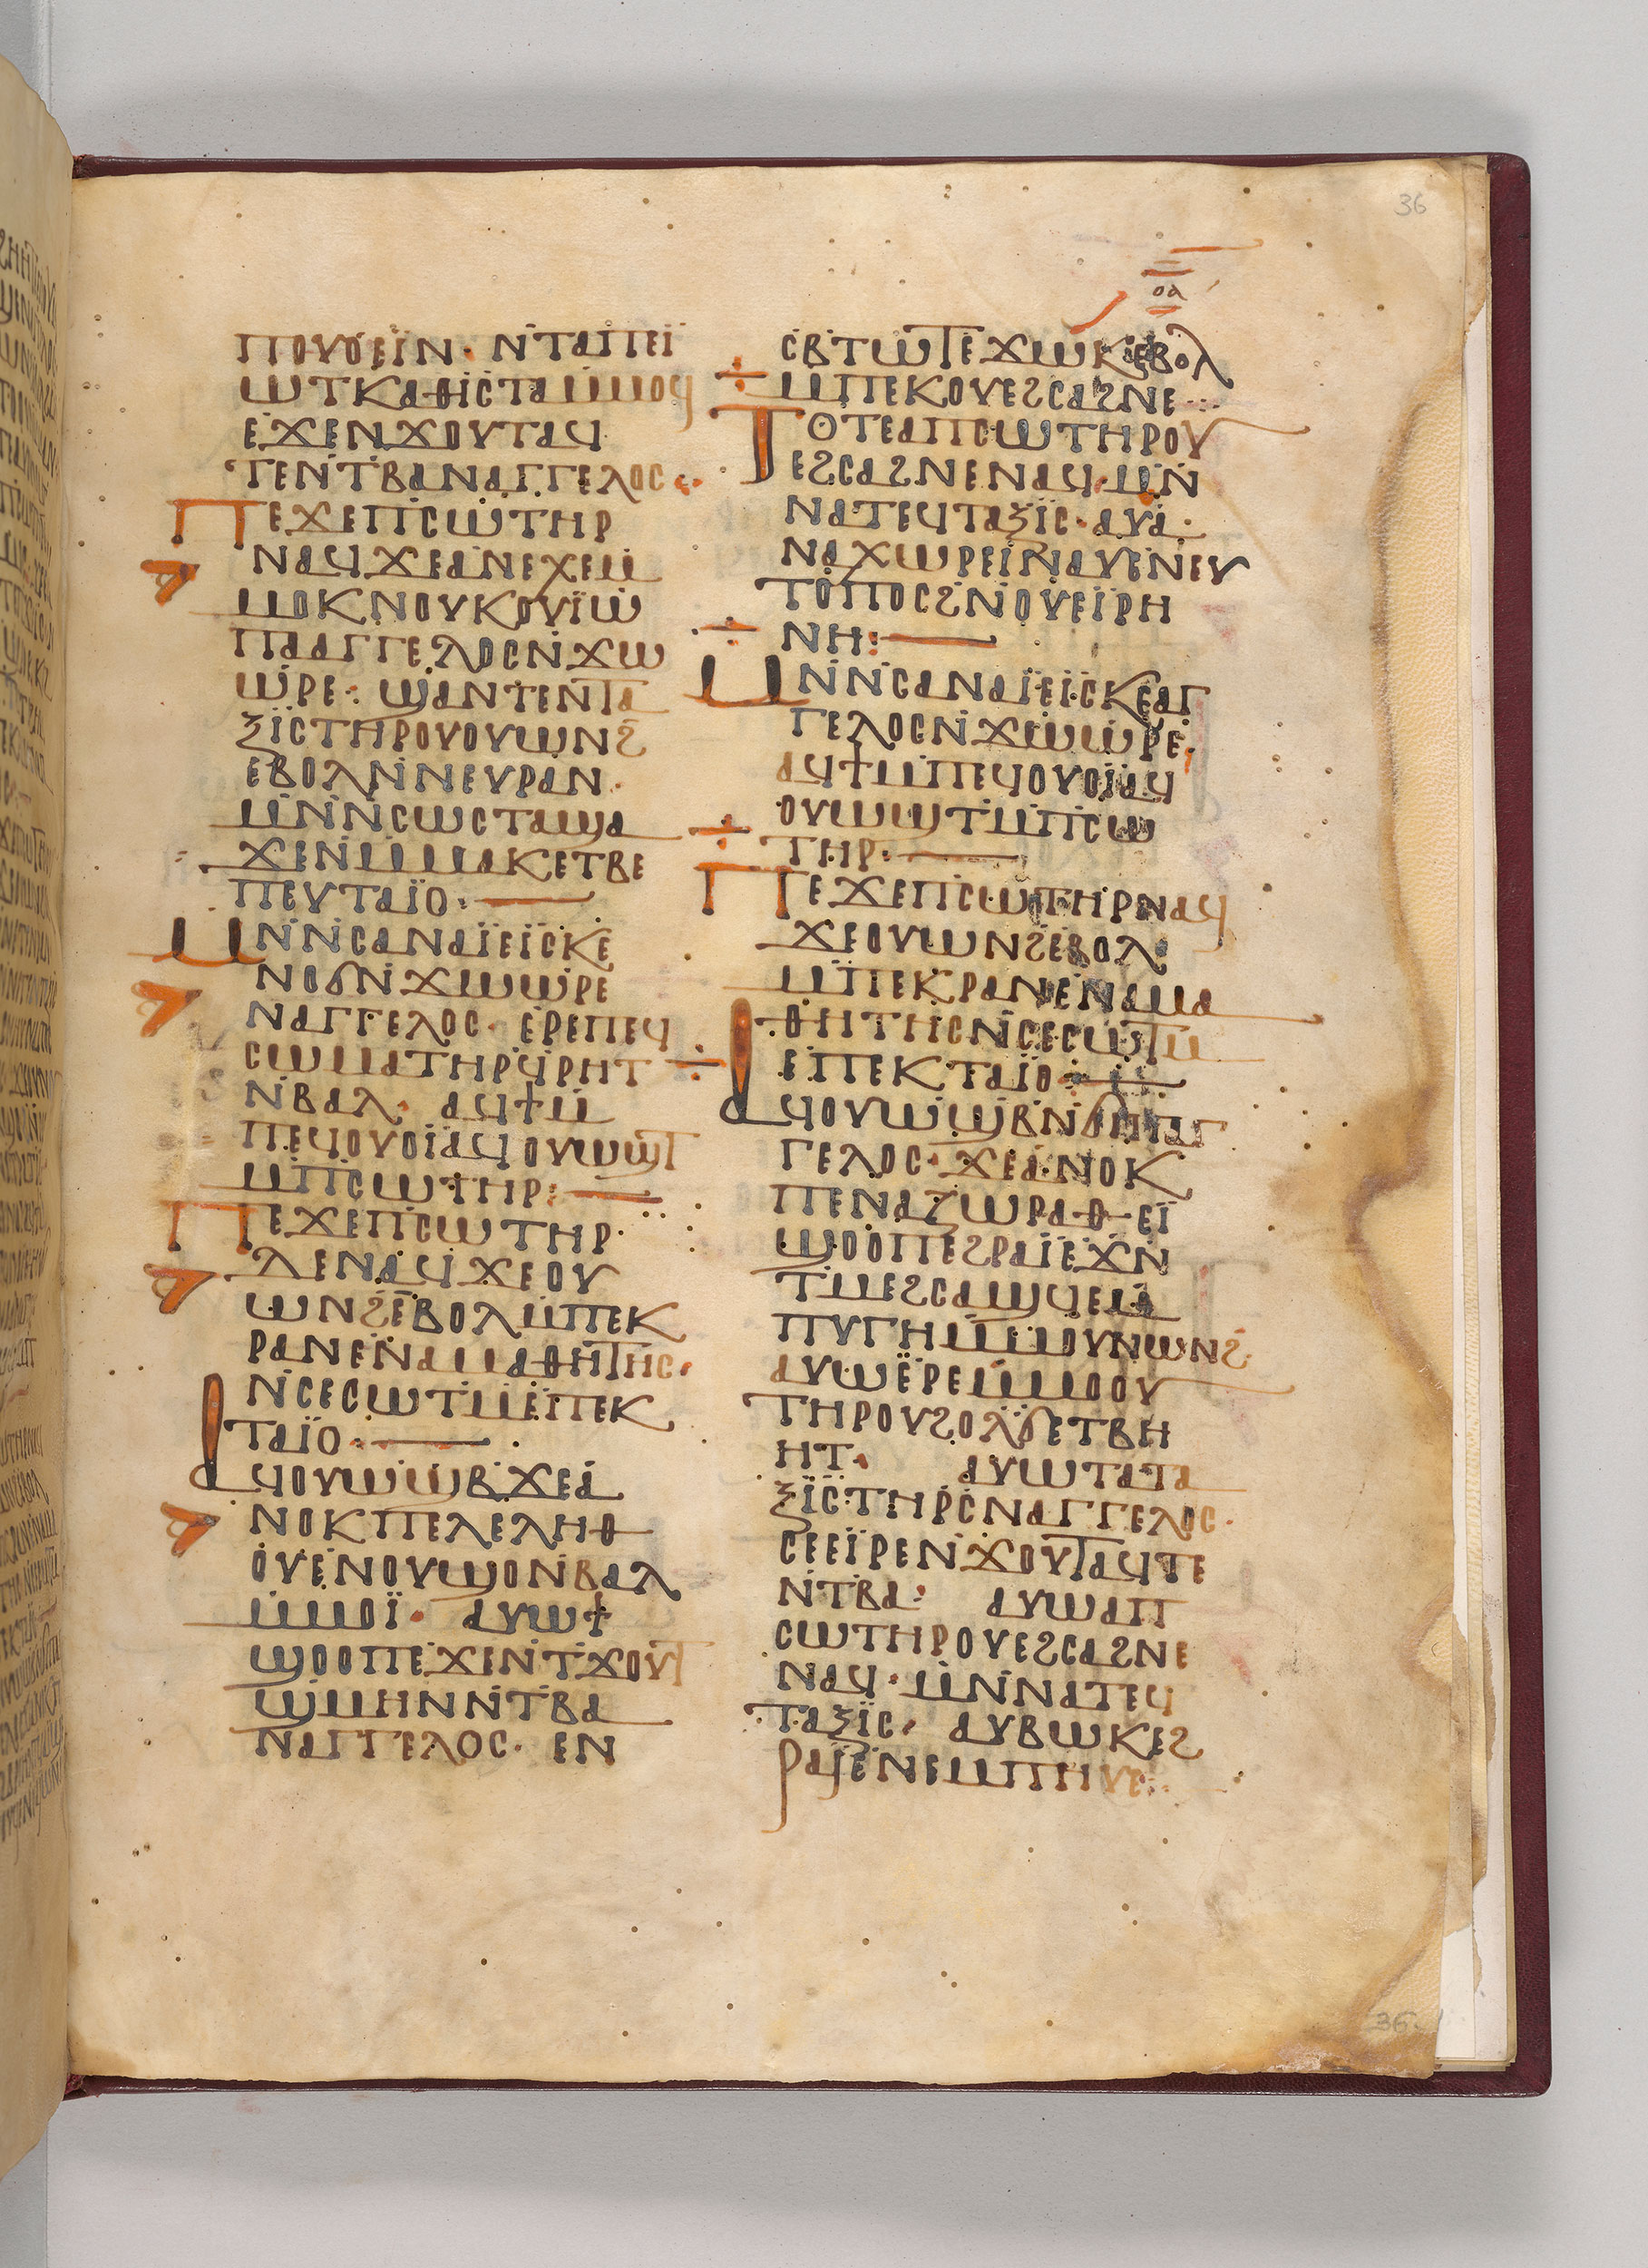 36
ⲟⲁ
ⲡⲟⲩⲟⲉⲓⲛ· ⲛⲧⲁⲡⲉⲓ
ⲱⲧⲕⲁⲑⲓⲥⲧⲁⲙⲙⲟϥ
ⲉϫⲉⲛϫⲟⲩⲧⲁϥ
ⲧⲉⲛⲧⲃⲁⲛⲁⲅⲅⲉⲗⲟⲥ·
ⲡⲉϫⲉⲡⲥⲱⲧⲏⲣ
ⲛⲁϥϫⲉⲁⲛⲉⲭⲉⲙ
ⲙⲟⲕⲛⲟⲩⲕⲟⲩⲓ̈ⲱ
ⲡⲁⲁⲅⲅⲉⲗⲟⲥⲛϫⲱ
ⲱⲣⲉ· ϣⲁⲛⲧⲉⲛⲧⲁ
ⲝⲓ̈ⲥⲧⲏⲣⲟⲩⲟⲩⲱⲛϩ
ⲉⲃⲟⲗⲛⲛⲉⲩⲣⲁⲛ·
ⲙⲛⲛⲥⲱⲥⲧⲁϣⲁ
ϫⲉⲛⲙⲙⲁⲕⲉⲧⲃⲉ
ⲡⲉⲩⲧⲁⲓ̈ⲟ·
ⲙⲛⲛⲥⲁⲛⲁⲓ̈ⲉⲓ̈ⲥⲕⲉ
ⲛⲟϭⲛϫⲱⲱⲣⲉ
ⲛⲁⲅⲅⲉⲗⲟⲥ· ⲉⲣⲉⲡⲉϥ
ⲥⲱⲙⲁⲧⲏⲣϥⲣⲏⲧ
ⲛⲃⲁⲗ· ⲁϥϯⲙ
ⲡⲉϥⲟⲩⲟⲓ̈ⲁϥⲟⲩⲱϣⲧ
ⲙⲡⲥⲱⲧⲏⲣ:
ⲡⲉϫⲉⲡⲥⲱⲧⲏⲣ·
ⲇⲉⲛⲁϥϫⲉⲟⲩ
ⲱⲛϩⲉⲃⲟⲗⲙⲡⲉⲕ
ⲣⲁⲛⲉⲛⲁⲙⲁⲑⲏⲧⲏⲥ·
ⲛⲥⲉⲥⲱⲧⲙⲉⲡⲉⲕ
ⲧⲁⲓ̈ⲟ·
ⲁϥⲟⲩⲱϣⲃϫⲉⲁ
ⲛⲟⲕⲡⲉⲗⲉⲗⲏⲑ
ⲟⲩⲉⲛⲟⲩϣⲟⲛⲃⲁⲗ
ⲙⲙⲟⲓ̈· ⲁⲩⲱϯ
ϣⲟⲟⲡⲉϫⲓⲛⲧϫⲟⲩⲧ
ϣⲙⲏⲛⲛⲧⲃⲁ
ⲛⲁⲅⲅⲉⲗⲟⲥ· ⲉⲛ
ⲥⲃⲧⲱⲧⲉϫⲱⲕⲉⲃⲟⲗ
ⲙⲡⲉⲕⲟⲩⲉϩⲥⲁϩⲛⲉ·
ⲧⲟⲧⲉⲁⲡⲥⲱⲧⲏⲣⲟⲩ
ⲉϩⲥⲁϩⲛⲉⲛⲁϥ·ⲙⲛ
ⲛⲁⲧⲉϥⲧⲁⲝⲓ̈ⲥ·ⲁⲩⲁ·
ⲛⲁⲭⲱⲣⲉⲓⲛⲁⲩⲉⲛⲉⲩ
ⲧⲟⲡⲟⲥϩⲛⲟⲩⲉⲓ̈ⲣⲏ
ⲛⲏ:
ⲙⲛⲛⲥⲁⲛⲁⲓ̈ⲉⲓ̈ⲥⲕⲉⲁⲅ
ⲅⲉⲗⲟⲥⲛϫⲱⲱⲣⲉ
ⲁϥϯⲙⲡⲉϥⲟⲩⲟⲓ̈ⲁϥ
ⲟⲩⲱϣⲧⲙⲡⲥⲱ
ⲧⲏⲣ·
ⲡⲉϫⲉⲡⲥⲱⲧⲏⲣⲛⲁϥ
ϫⲉⲟⲩⲱⲛϩⲉⲃⲟⲗ
ⲙⲡⲉⲕⲣⲁⲛⲉⲛⲁⲙⲁ
ⲑⲏⲧⲏⲥⲛⲥⲉⲥⲱⲧⲙ
ⲉⲡⲉⲕⲧⲁⲓ̈ⲟ
ⲁϥⲟⲩⲱϣⲃⲛϭⲓⲡⲁⲅ
ⲅⲉⲗⲟⲥ· ϫⲉⲁⲛⲟⲕ
ⲡⲉⲛⲁⲍⲱⲣⲁⲑ·ⲉⲓ̈
ϣⲟⲟⲡⲉϩⲣⲁⲓ̈ⲉϫⲛ
ⲧⲙⲉϩⲥⲁϣϥⲉⲙ
ⲡⲩⲅⲏⲙⲙⲟⲩⲛⲱⲛϩ·
ⲁⲩⲱⲉⲣⲉⲙⲙⲟⲟⲩ
ⲧⲏⲣⲟⲩϩⲟⲗϭⲉⲧⲃⲏ
ⲏⲧ· ⲁⲩⲱⲧⲁⲧⲁ
ⲝⲓ̈ⲥⲧⲏⲣⲥⲛⲁⲅⲅⲉⲗⲟⲥ·
ⲥⲉⲉⲓ̈ⲣⲉⲛϫⲟⲩⲧⲁϥⲧⲉ
ⲛⲧⲃⲁ: ⲁⲩⲱⲁⲡ
ⲥⲱⲧⲏⲣⲟⲩⲉϩⲥⲁϩⲛⲉ
ⲛⲁϥ·ⲙⲛⲛⲁⲧⲉϥ
ⲧⲁⲝⲓ̈ⲥ· ⲁⲩⲃⲱⲕⲉϩ
ⲣⲁⲓⲉⲛⲉⲙⲡⲏⲩⲉ
36